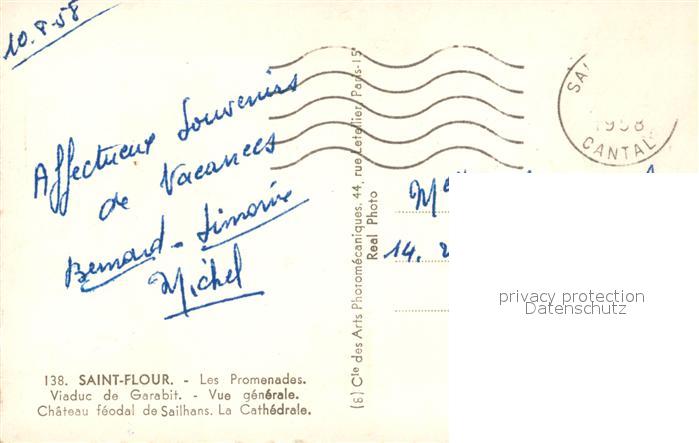 10.8.58
Affectueux Souvenirs
de Vacances
Bernard - Simone
Michel
138. SAINT-FLOUR. - Les Promenades.
Viaduc de Garabit. - Vue générale.
Château féodal de Sailhans. La Cathédrale.
(6) Cie des Arts Photomécaniques. 44, rue Letellier, Paris-15e
Real Photo
SA
1958
CANTAL
14.
privacy protection
Datenschutz